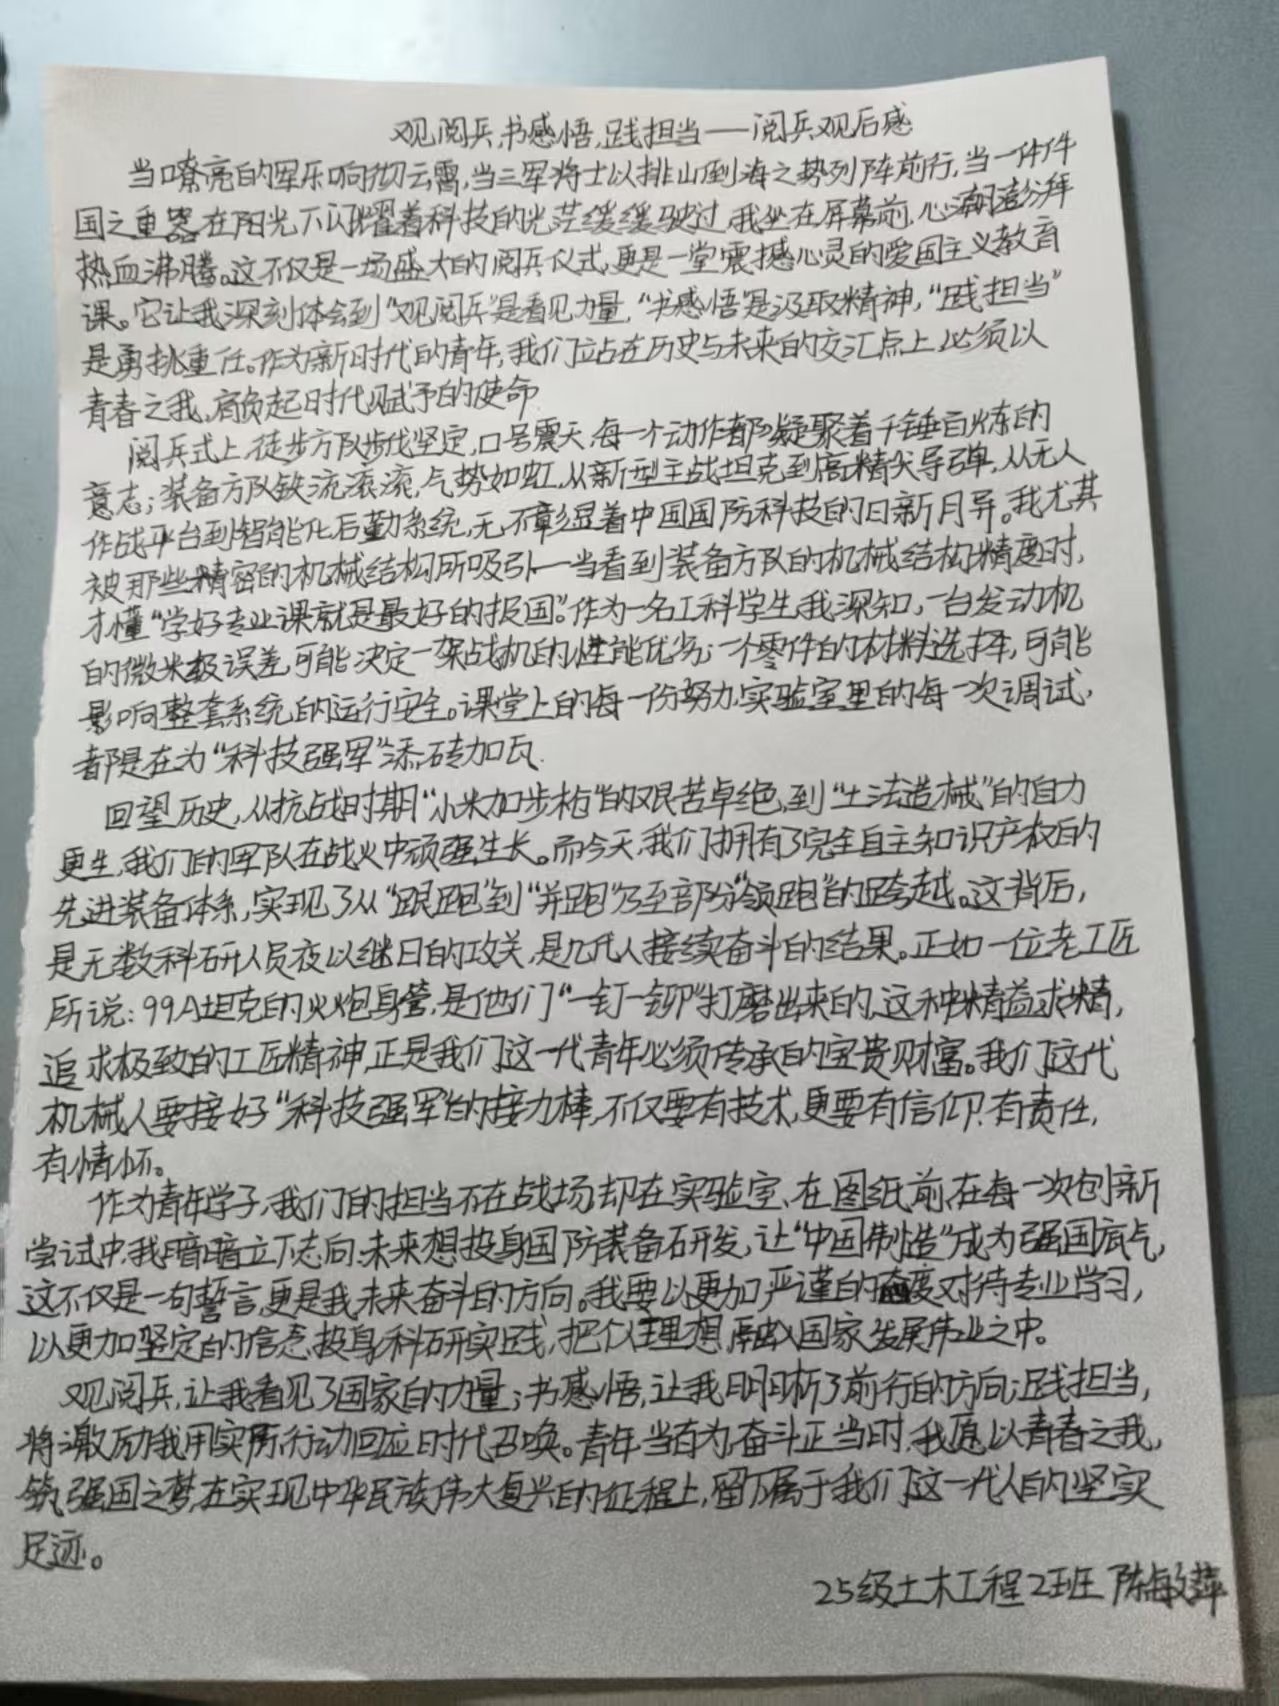 观阅兵,书感悟,践担当——阅兵观后感
当嘹亮的军乐响彻云霄,当三军将士以排山倒海之势列阵前行,当一件件
国之重器在阳光下闪耀着科技的光芒缓缓驶过,我坐在屏幕前,心潮澎湃
热血沸腾。这不仅是一场盛大的阅兵仪式,更是一堂震撼心灵的爱国主义教育
课。它让我深刻体会到“观阅兵”是看见力量,“书感悟”是汲取精神,“践担当”
是勇挑重任。作为新时代的青年,我们站在历史与未来的交汇点上,必须以
青春之我,肩负起时代赋予的使命.
阅兵式上,徒步方队步伐坚定,口号震天,每一个动作都凝聚着千锤百炼的
意志;装备方队铁流滚滚,气势如虹,从新型主战坦克到高精尖导弹,从无人
作战平台到智能化后勤系统,无不彰显着中国国防科技的日新月异。我尤其
被那些精密的机械结构所吸引—当看到装备方队的机械结构精度时,
才懂“学好专业课就是最好的报国”。作为一名工科学生,我深知,一台发动机
的微米级误差,可能决定一架战机的性能优劣;一个零件的材料选择,可能
影响整套系统的运行安全。课堂上的每一份努力,实验室里的每一次调试,
都是在为“科技强军”添砖加瓦.
回望历史,从抗战时期“小米加步枪”的艰苦卓绝,到“土法造械”的自力
更生,我们的军队在战火中顽强生长。而今天,我们拥有了完全自主知识产权的
先进装备体系,实现了从“跟跑”到“并跑”乃至部分“领跑”的跨越。这背后,
是无数科研人员夜以继日的攻关,是几代人接续奋斗的结果。正如一位老工匠
所说:99A坦克的火炮身管,是他们“一钉一铆”打磨出来的,这种精益求精,
追求极致的工匠精神,正是我们这一代青年必须传承的宝贵财富。我们这代
机械人要接好“科技强军”的接力棒,不仅要有技术,更要有信仰.有责任,
有情怀。
作为青年学子,我们的担当不在战场却在实验室、在图纸前,在每一次创新
尝试中,我暗暗立下志向:未来想投身国防装备研发,让“中国制造”成为强国底气,
这不仅是一句誓言,更是我未来奋斗的方向。我要以更加严谨的态度对待专业学习,
以更加坚定的信念投身科研实践,把个人理想融入国家发展伟业之中。
观阅兵,让我看见了国家的力量;书感悟,让我明晰了前行的方向;践担当,
将激励我用实际行动回应时代召唤。青年当有为,奋斗正当时,我愿以青春之我,
筑强国之梦,在实现中华民族伟大复兴的征程上,留下属于我们这一代人的坚实
足迹。
25级土木工程2班 陈敏萍